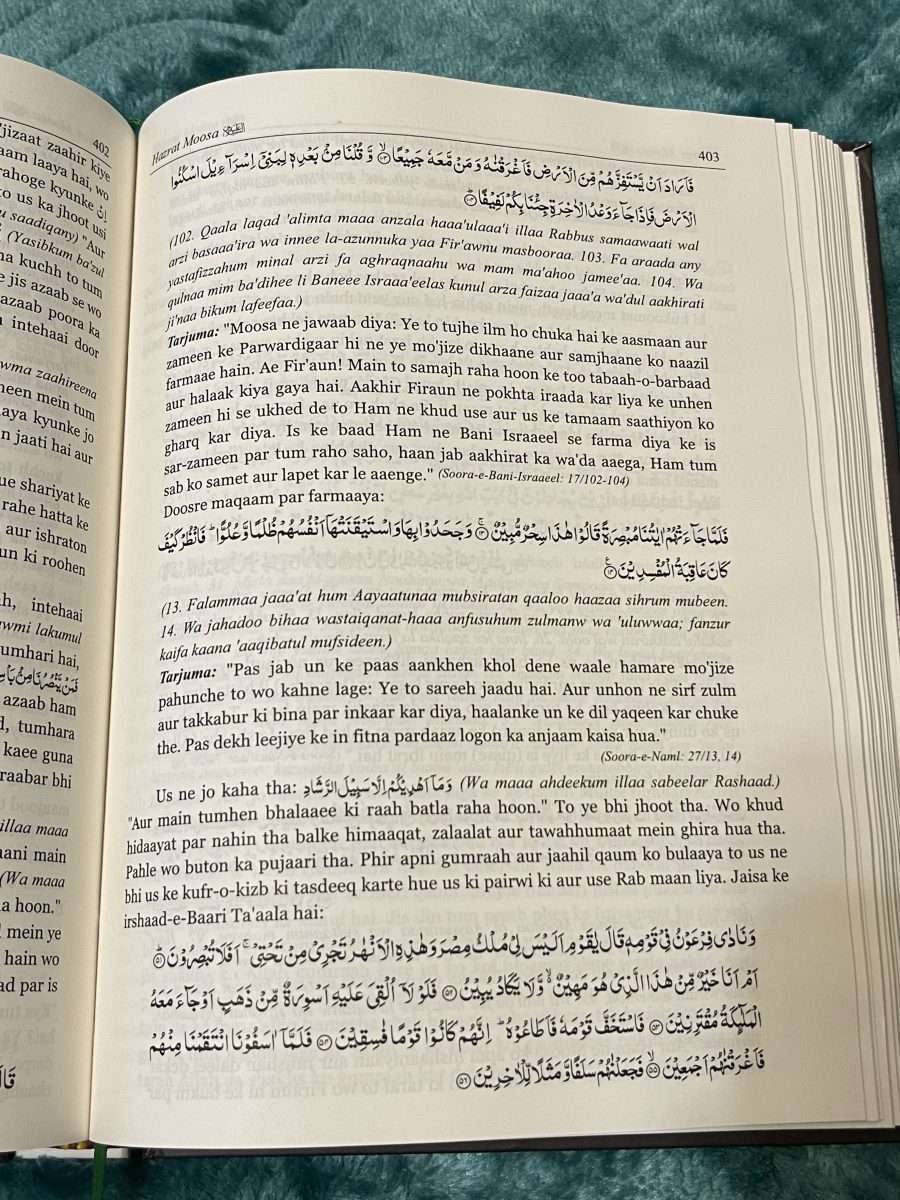 402
'jizaat zaahir kiye
aam laaya hai, wo
rahoge kyunke اِنْ
to us ka jhoot usi
u saadiqany) "Aur
(Yasibkum ba'zul
na kuchh to tum
e jis azaab se wo
azaab poora ka
intehaai door
wma zaahireena
meen mein tum
aya kyunke jo
n jaati hai aur
ue shariyat ke
rahe hatta ke
aur ishraton
un ki roohen
ah, intehaai
wmi lakumul
umhari hai,
فَمَنْ يَّنْصُرُنَا مِنْۢ بَاْسِ
azaab ham
d, tumhara
kaee guna
raabar bhi
illaa maaa
aani main
(Wa maaa
a hoon."
mein ye
hain wo
ad par is
قَالَ
Hazrat Moosa
403
فَاَرَادَ اَنْ يَّسْتَفِزَّهُمْ مِّنَ الْاَرْضِ فَاَغْرَقْنٰهُ وَمَنْ مَّعَهٗ جَمِيْعًا ۝۱۰۳ وَّ قُلْنَا مِنْۢ بَعْدِهٖ لِبَنِيْٓ اِسْرَآءِيْلَ اسْكُنُوا
الْاَرْضَ فَاِذَا جَآءَ وَعْدُ الْاٰخِرَةِ جِئْنَا بِكُمْ لَفِيْفًا ۝۱۰۴
(102. Qaala laqad 'alimta maaa anzala haaa'ulaaa'i illaa Rabbus samaawaati wal
arzi basaaa'ira wa innee la-azunnuka yaa Fir'awnu masbooraa. 103. Fa araada any
yastafizzahum minal arzi fa aghraqnaahu wa mam ma'ahoo jamee'aa. 104. Wa
qulnaa mim ba'dihee li Baneee Israaa'eelas kunul arza faizaa jaaa'a wa'dul aakhirati
ji'naa bikum lafeefaa.)
Tarjuma: "Moosa ne jawaab diya: Ye to tujhe ilm ho chuka hai ke aasmaan aur
zameen ke Parwardigaar hi ne ye mo'jize dikhaane aur samjhaane ko naazil
farmaae hain. Ae Fir'aun! Main to samajh raha hoon ke too tabaah-o-barbaad
aur halaak kiya gaya hai. Aakhir Firaun ne pokhta iraada kar liya ke unhen
zameen hi se ukhed de to Ham ne khud use aur us ke tamaam saathiyon ko
gharq kar diya. Is ke baad Ham ne Bani Israaeel se farma diya ke is
sar-zameen par tum raho saho, haan jab aakhirat ka wa'da aaega, Ham tum
sab ko samet aur lapet kar le aaenge." (Soora-e-Bani-Israaeel: 17/102-104)
Doosre maqaam par farmaaya:
فَلَمَّا جَآءَتْهُمْ اٰيٰتُنَا مُبْصِرَةً قَالُوْا هٰذَا سِحْرٌ مُّبِيْنٌ ۝۱۳ وَجَحَدُوْا بِهَا وَاسْتَيْقَنَتْهَآ اَنْفُسُهُمْ ظُلْمًا وَّعُلُوًّا ؕ فَانْظُرْ كَيْفَ
كَانَ عَاقِبَةُ الْمُفْسِدِيْنَ ۝۱۴
(13. Falammaa jaaa'at hum Aayaatunaa mubsiratan qaaloo haazaa sihrum mubeen.
14. Wa jahadoo bihaa wastaiqanat-haaa anfusuhum zulmanw wa 'uluwwaa; fanzur
kaifa kaana 'aaqibatul mufsideen.)
Tarjuma: "Pas jab un ke paas aankhen khol dene waale hamare mo'jize
pahunche to wo kahne lage: Ye to sareeh jaadu hai. Aur unhon ne sirf zulm
aur takkabur ki bina par inkaar kar diya, haalanke un ke dil yaqeen kar chuke
the. Pas dekh leejiye ke in fitna pardaaz logon ka anjaam kaisa hua."
(Soora-e-Naml: 27/13, 14)
Us ne jo kaha tha: وَمَآ اَهْدِيْكُمْ اِلَّا سَبِيْلَ الرَّشَادِ (Wa maaa ahdeekum illaa sabeelar Rashaad.)
"Aur main tumhen bhalaaee ki raah batla raha hoon." To ye bhi jhoot tha. Wo khud
hidaayat par nahin tha balke himaaqat, zalaalat aur tawahhumaat mein ghira hua tha.
Pahle wo buton ka pujaari tha. Phir apni gumraah aur jaahil qaum ko bulaaya to us ne
bhi us ke kufr-o-kizb ki tasdeeq karte hue us ki pairwi ki aur use Rab maan liya. Jaisa ke
irshaad-e-Baari Ta'aala hai:
وَنَادٰى فِرْعَوْنُ فِيْ قَوْمِهٖ قَالَ يٰقَوْمِ اَلَيْسَ لِيْ مُلْكُ مِصْرَ وَهٰذِهِ الْاَنْهٰرُ تَجْرِيْ مِنْ تَحْتِيْ ۚ اَفَلَا تُبْصِرُوْنَ ۝۵۱
اَمْ اَنَا خَيْرٌ مِّنْ هٰذَا الَّذِيْ هُوَ مَهِيْنٌ ۙ وَّلَا يَكَادُ يُبِيْنُ ۝۵۲ فَلَوْلَآ اُلْقِيَ عَلَيْهِ اَسْوِرَةٌ مِّنْ ذَهَبٍ اَوْ جَآءَ مَعَهُ
الْمَلٰٓئِكَةُ مُقْتَرِنِيْنَ ۝۵۳ فَاسْتَخَفَّ قَوْمَهٗ فَاَطَاعُوْهُ ؕ اِنَّهُمْ كَانُوْا قَوْمًا فٰسِقِيْنَ ۝۵۴ فَلَمَّآ اٰسَفُوْنَا انْتَقَمْنَا مِنْهُمْ
فَاَغْرَقْنٰهُمْ اَجْمَعِيْنَ ۝۵۵ فَجَعَلْنٰهُمْ سَلَفًا وَّمَثَلًا لِّلْاٰخِرِيْنَ ۝۵۶